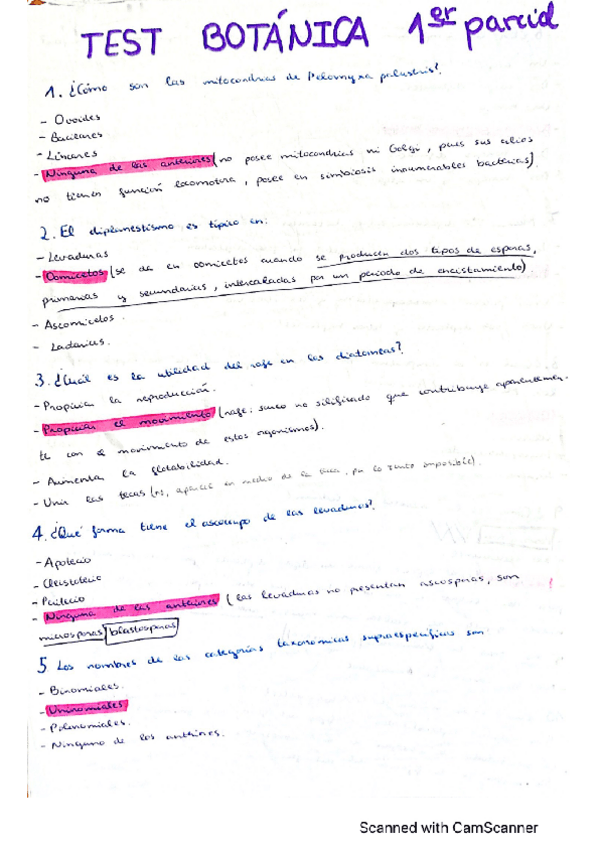 TEST BOTÁNICA 1er parcial
1. ¿Cómo son las mitocondrias de Pelomyxa palustris?
- Ovoides
- Bacilares
- Lineares
- Ninguna de las anteriores (no posee mitocondrias ni Golgi, pues sus cilios
no tienen función locomotora, posee en simbiosis innumerables bacterias)
2. El diplanetismo es típico en:
- Levaduras
- Oomicetos (se da en oomicetos cuando se producen dos tipos de esporas,
primarias y secundarias, intercaladas por un periodo de enquistamiento)
- Ascomicetos.
3. ¿Cuál es la utilidad del rafe en las diatomeas?
- Propiciar la reproducción.
- Propiciar el movimiento (rafe: surco no silificado que contribuye aparentemen-
te con el movimiento de estos organismos).
- Aumentar la flotabilidad.
- Unir las tecas (no, aparece en medio de la teca, por lo tanto imposible).
4. ¿Qué forma tiene el ascocarpo de las levaduras?
- Apotecio
- Cleistotecio
- Peritecio
- Ninguna de las anteriores (las levaduras no presentan ascosporas, son
microsporas) blastosporas
5 Los nombres de las categorías taxonómicas supraespecíficas son:
- Binomiales.
- Uninomiales
- Polinomiales.
- Ninguno de los anteriores.
Scanned with CamScanner